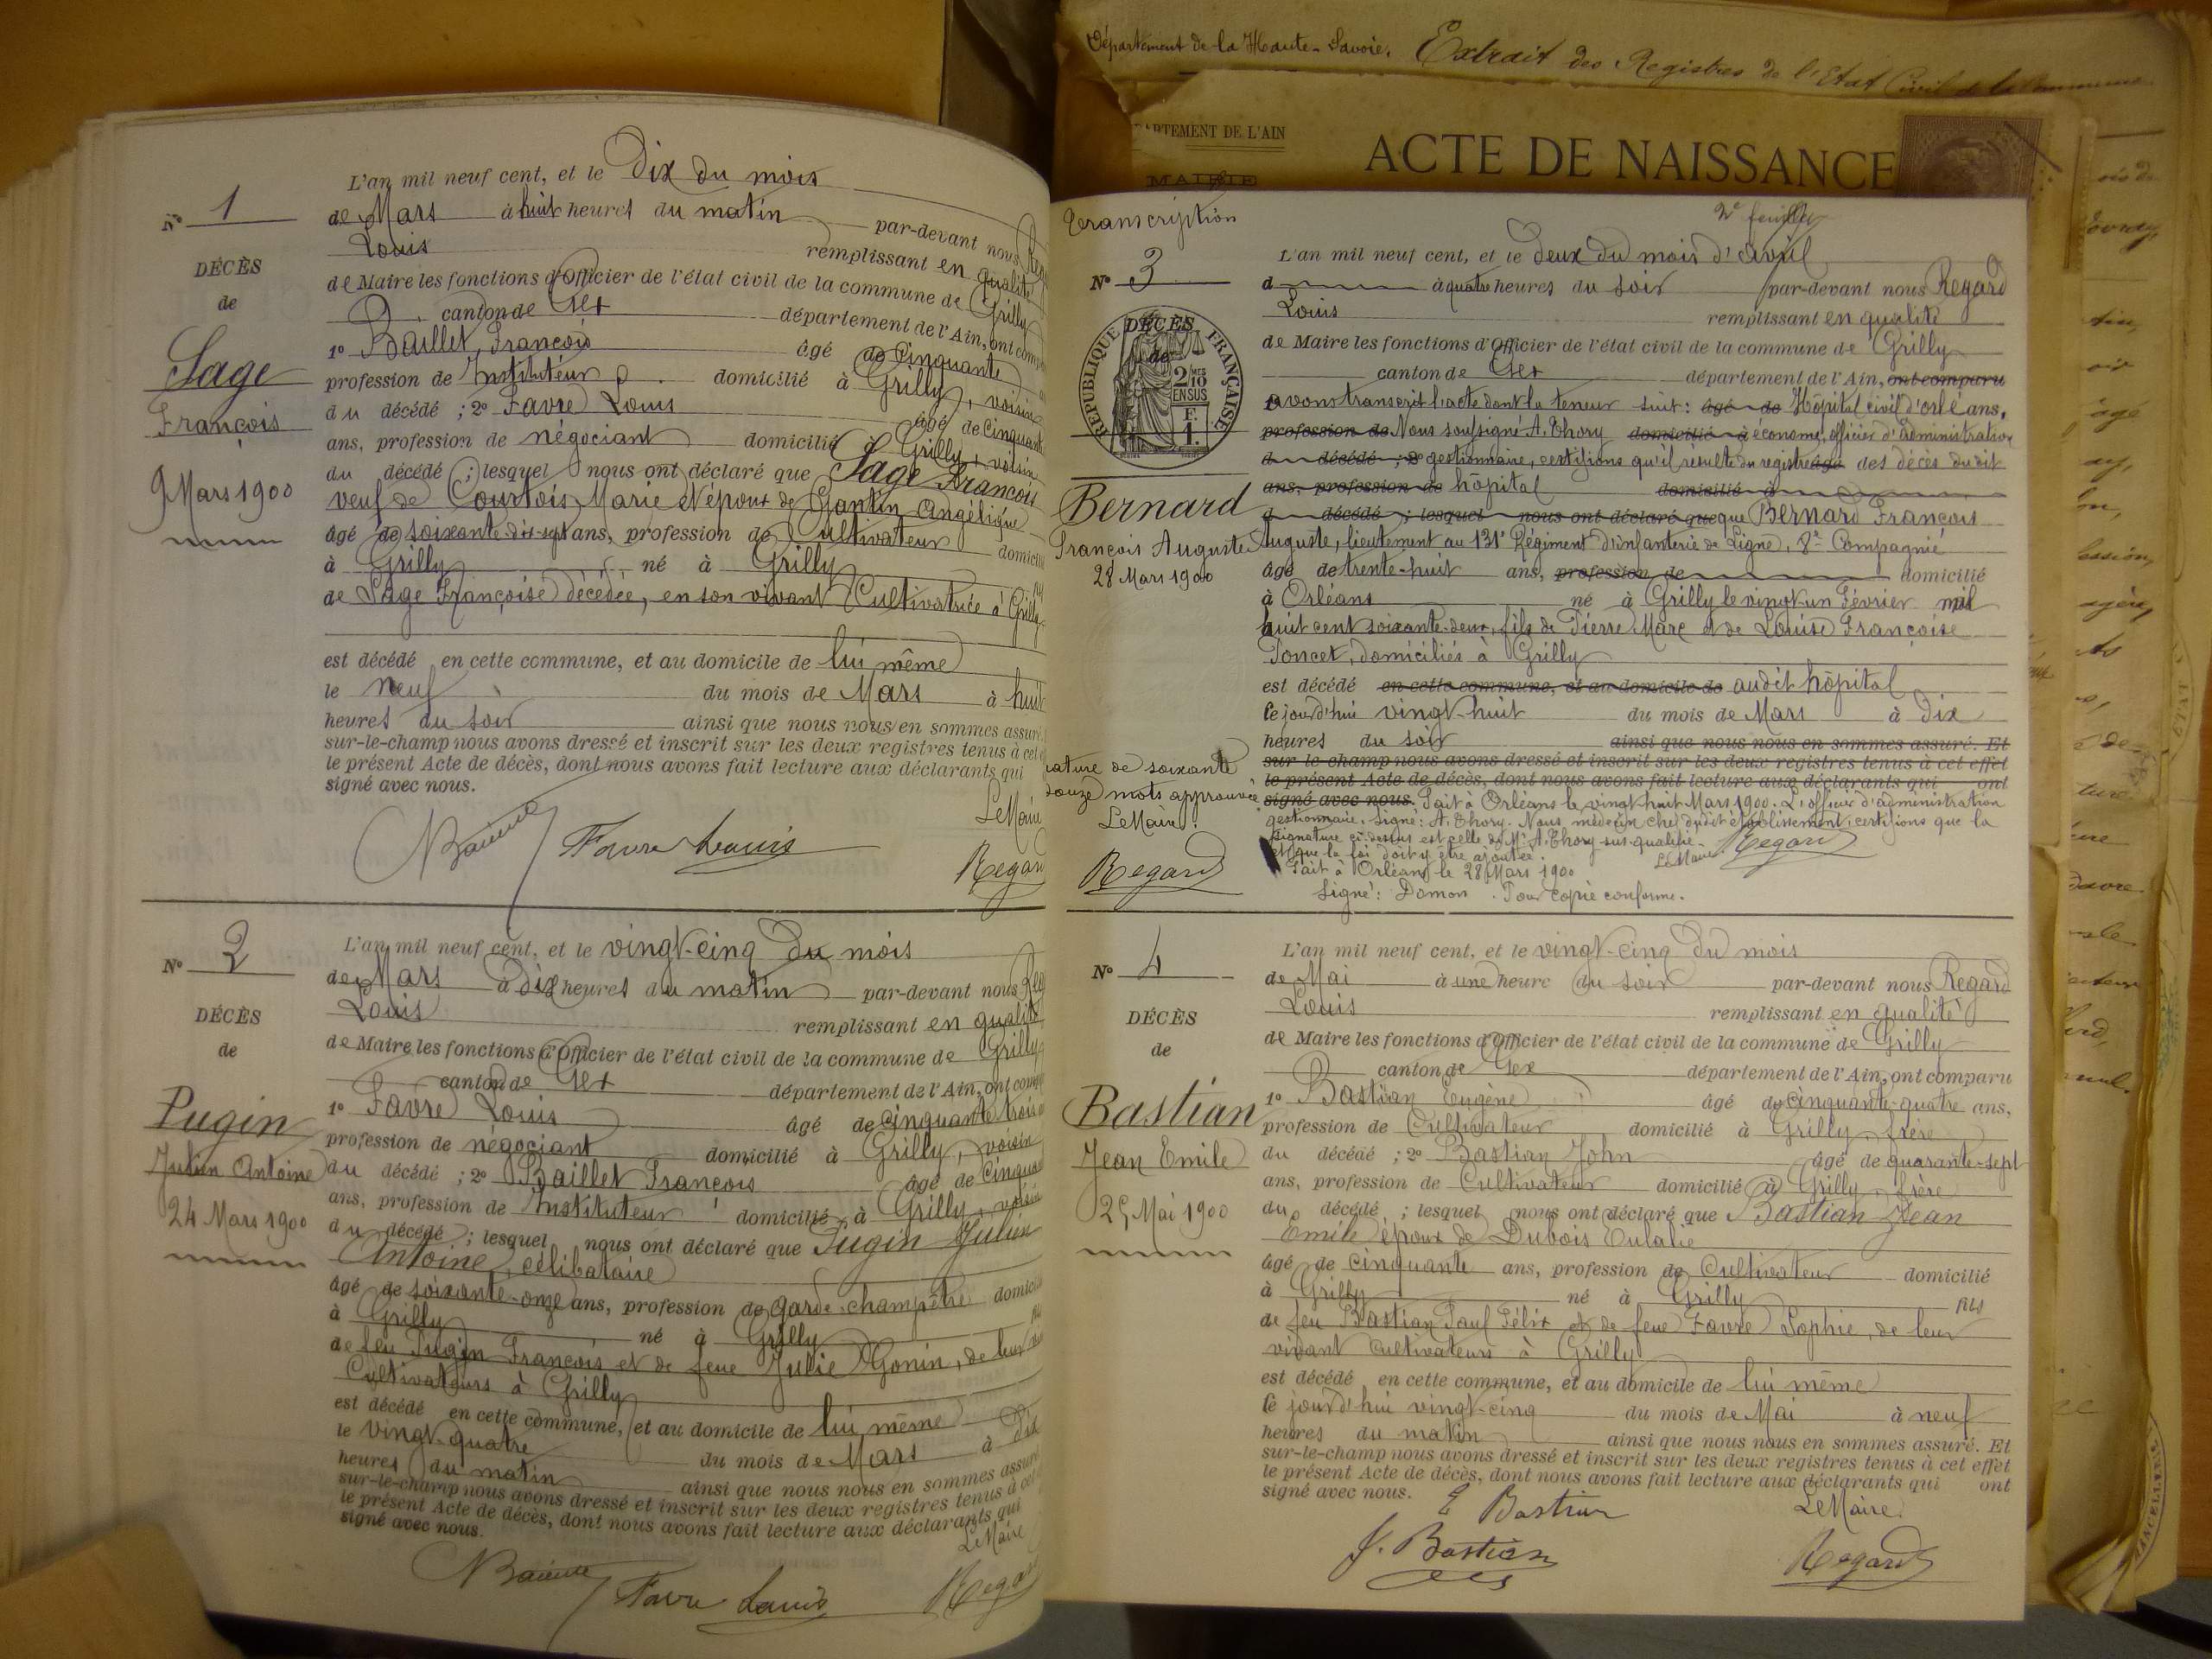 Département de la Haute-Savoie. Extrait des Registres de l'Etat Civil de la Commune
DÉPARTEMENT DE L'AIN
MAIRIE
ACTE DE NAISSANCE
N° 1
DÉCÈS
de
Sage
François
9 Mars 1900
L'an mil neuf cent, et le Dix du mois
de Mars à huit heures du matin par-devant nous
Louis remplissant en qualité
de Maire les fonctions d'Officier de l'état civil de la commune de Grilly
canton de Gex département de l'Ain, ont
1° Baillet, François âgé de Cinquante
profession de Instituteur domicilié à Grilly, voisin
du décédé ; 2° Favre Louis âgé de Cinquante
ans, profession de négociant domicilié à Grilly, voisin
du décédé ; lesquel nous ont déclaré que Sage François
veuf de Courtois Marie & époux de Gantin Angélique
âgé de soixante-dix-sept ans, profession de Cultivateur
à Grilly né à Grilly
de Sage Françoise décédée, en son vivant Cultivatrice à Grilly
est décédé en cette commune, et au domicile de lui même
le neuf du mois de Mars à huit
heures du soir ainsi que nous nous en sommes assuré.
sur-le-champ nous avons dressé et inscrit sur les deux registres tenus à cet
le présent Acte de décès, dont nous avons fait lecture aux déclarants qui
signé avec nous.
Le Maire
Favre Louis
Regard
N° 2
DÉCÈS
de
Pugin
Julien Antoine
24 Mars 1900
L'an mil neuf cent, et le vingt-cinq du mois
de Mars à dix heures du matin par-devant nous
Louis remplissant en qualité
de Maire les fonctions d'Officier de l'état civil de la commune de Grilly
canton de Gex département de l'Ain, ont
1° Favre Louis âgé de cinquante trois
profession de négociant domicilié à Grilly, voisin
du décédé ; 2° Baillet François âgé de
ans, profession de Instituteur domicilié à Grilly, voisin
du décédé ; lesquel nous ont déclaré que Pugin Julien
Antoine, célibataire
âgé de soixante-onze ans, profession de garde-champêtre
à Grilly né à Grilly
de feu Pugin François et de feue Julie Gonin, de leur
Cultivateurs à Grilly
est décédé en cette commune, et au domicile de lui même
le vingt-quatre du mois de Mars à dix
heures du matin ainsi que nous nous en sommes assuré
sur-le-champ nous avons dressé et inscrit sur les deux registres tenus à cet
le présent Acte de décès, dont nous avons fait lecture aux déclarants qui
signé avec nous.
Le Maire
Favre Louis
Regard
Transcription
2e feuillet
N° 3
DÉCÈS
de
RÉPUBLIQUE FRANÇAISE
2/10 MES
EN SUS
F. 1.
Bernard
François Auguste
28 Mars 1900
L'an mil neuf cent, et le deux du mois d'avril
d à quatre heures du soir par-devant nous Regard
Louis remplissant en qualité
de Maire les fonctions d'Officier de l'état civil de la commune de Grilly
canton de Gex département de l'Ain, ont comparu
avons transcrit l'acte dont la teneur suit : âgé de Hôpital civil d'orléans,
profession de Nous soussigné A. Thory domicilié à économe, officier d'administration
d décédé ; 2° gestionnaire, certifions qu'il résulte du registre âgé des décès dudit
ans, profession de hôpital domicilié à
d décédé ; lesquel nous ont déclaré que que Bernard François
Auguste, lieutement au 131e Régiment d'infanterie de Ligne, 8e Compagnie
âgé de trente-huit ans, profession de domicilié
à Orléans né à Grilly le vingt-un Février mil
huit cent soixante-deux, fils de Pierre Marc et de Louise Françoise
Poncet, domiciliés à Grilly
est décédé en cette commune, et au domicile de audit hôpital
le jourd'hui vingt-huit du mois de Mars à Dix
heures du soir ainsi que nous nous en sommes assuré. Et
sur-le-champ nous avons dressé et inscrit sur les deux registres tenus à cet effet
le présent Acte de décès, dont nous avons fait lecture aux déclarants qui ont
signé avec nous. Fait à Orléans le vingt-huit Mars 1900. L'officier d'administration
gestionnaire. Signé : A. Thory. Nous médecin chef dudit établissement, certifions que la
signature ci-dessus est celle de Mr A. Thory sus-qualifié.
et que la foi doit y être ajoutée.
Fait à Orléans le 28 Mars 1900
Signé : Domon. Pour Copie conforme.
Le Maire
Regard
rature de soixante
douze mots approuvée
Le Maire :
Regard
N° 4
DÉCÈS
de
Bastian
Jean Emile
25 Mai 1900
L'an mil neuf cent, et le vingt-cinq du mois
de Mai à une heure du soir par-devant nous Regard
Louis remplissant en qualité
de Maire les fonctions d'Officier de l'état civil de la commune de Grilly
canton de Gex département de l'Ain, ont comparu
1° Bastian Eugène âgé de cinquante-quatre ans,
profession de Cultivateur domicilié à Grilly, frère
du décédé ; 2° Bastian John âgé de quarante-sept
ans, profession de Cultivateur domicilié à Grilly, frère
du décédé ; lesquel nous ont déclaré que Bastian Jean
Emile époux de Dubois Eulalie
âgé de cinquante ans, profession de Cultivateur domicilié
à Grilly né à Grilly fils
de feu Bastian Paul Félix et de feue Favre Sophie, de leur
vivant cultivateurs à Grilly
est décédé en cette commune, et au domicile de lui même
le jourd'hui vingt-cinq du mois de Mai à neuf
heures du matin ainsi que nous nous en sommes assuré. Et
sur-le-champ nous avons dressé et inscrit sur les deux registres tenus à cet effet
le présent Acte de décès, dont nous avons fait lecture aux déclarants qui ont
signé avec nous.
E Bastian
Le Maire.
J. Bastian
Regard